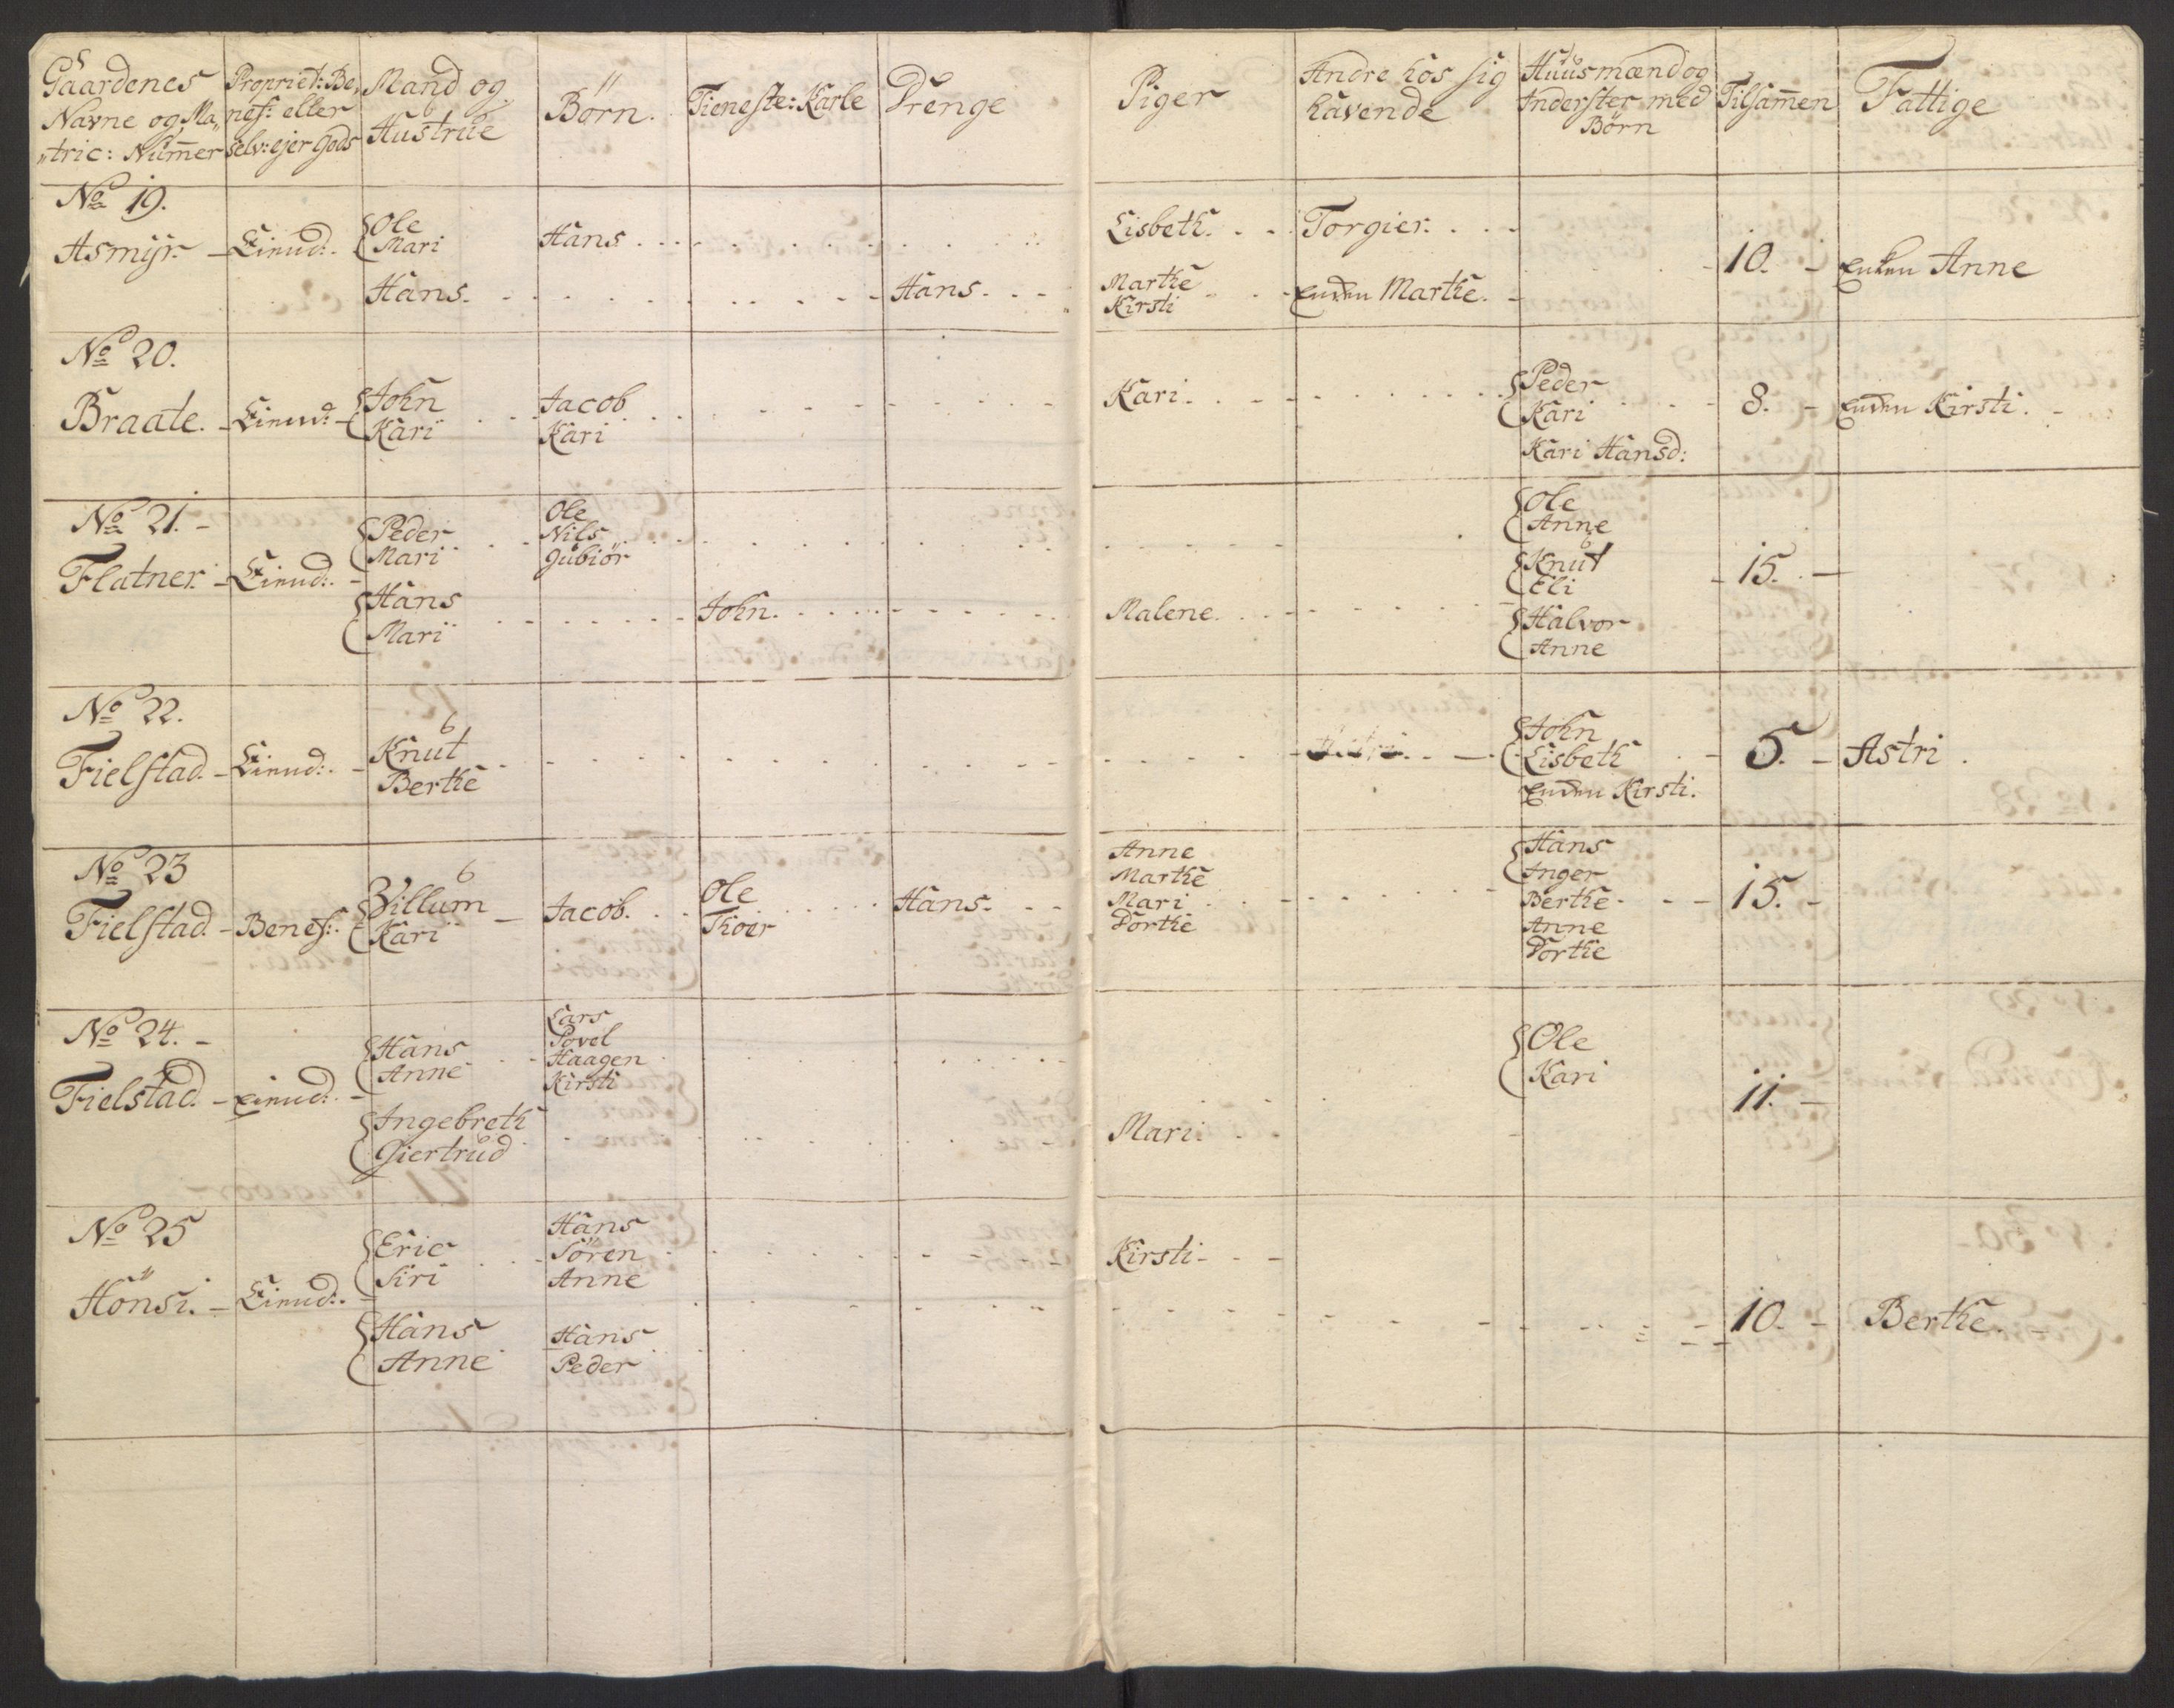 Gaardenes
Navne og Ma„
„tric: Num̅er
Propriet: Be„
nef: eller
selv: ejer Gods
Mand og
Hustrue
Börn.
Tieneste: Karle
Drenge
Piger
Andre hos sig
havende
Huusmænd og
Inderster med
Börn
Tilsam̅en
Fattige
No 19.
Asmyr. -
Ole
Mari
Hans . . .
Lisbeth. . .
Torgier. . . -
Hans.
Hans. . -
Marthe
Kirsti
Enken Marthe. -
10. -
Enken Anne
No 20.
Braate. -
John
Kari
Jacob
Kari
Kari. . -
Peder
Kari
Kari Hansd:
8. -
Enken Kirsti. -
No 21. -
Flatner. -
Peder
Mari
Ole
Nils
Gubiör
Hans
Mari
John.
Malene. . .
Ole
Anne
Knut
Eli
Halvor
Anne
15. -
No 22.
Fielstad. -
Knut
Berthe
John
Lisbeth
Enken Kirsti.
5. -
Astri .
No 23
Fielstad. -
Benef:.
Villum
Kari
Jacob. .
Ole
Thoer
Hans. . -
Anne
Marthe
Mari
Dorthe
Hans
Inger
Berthe
Anne
Dorthe
15. -
No 24. -
Fielstad. -
Hans
Anne
Lars
Povel
Haagen
Kirsti
Ingebreth
Giertrud
Mari.
Ole
Kari
11. -
No 25
Hönsi. -
Eric
Siri
Hans
Sören
Anne
Kirsti - - -
Hans
Anne
Hans
Peder
10. -
Berthe. -